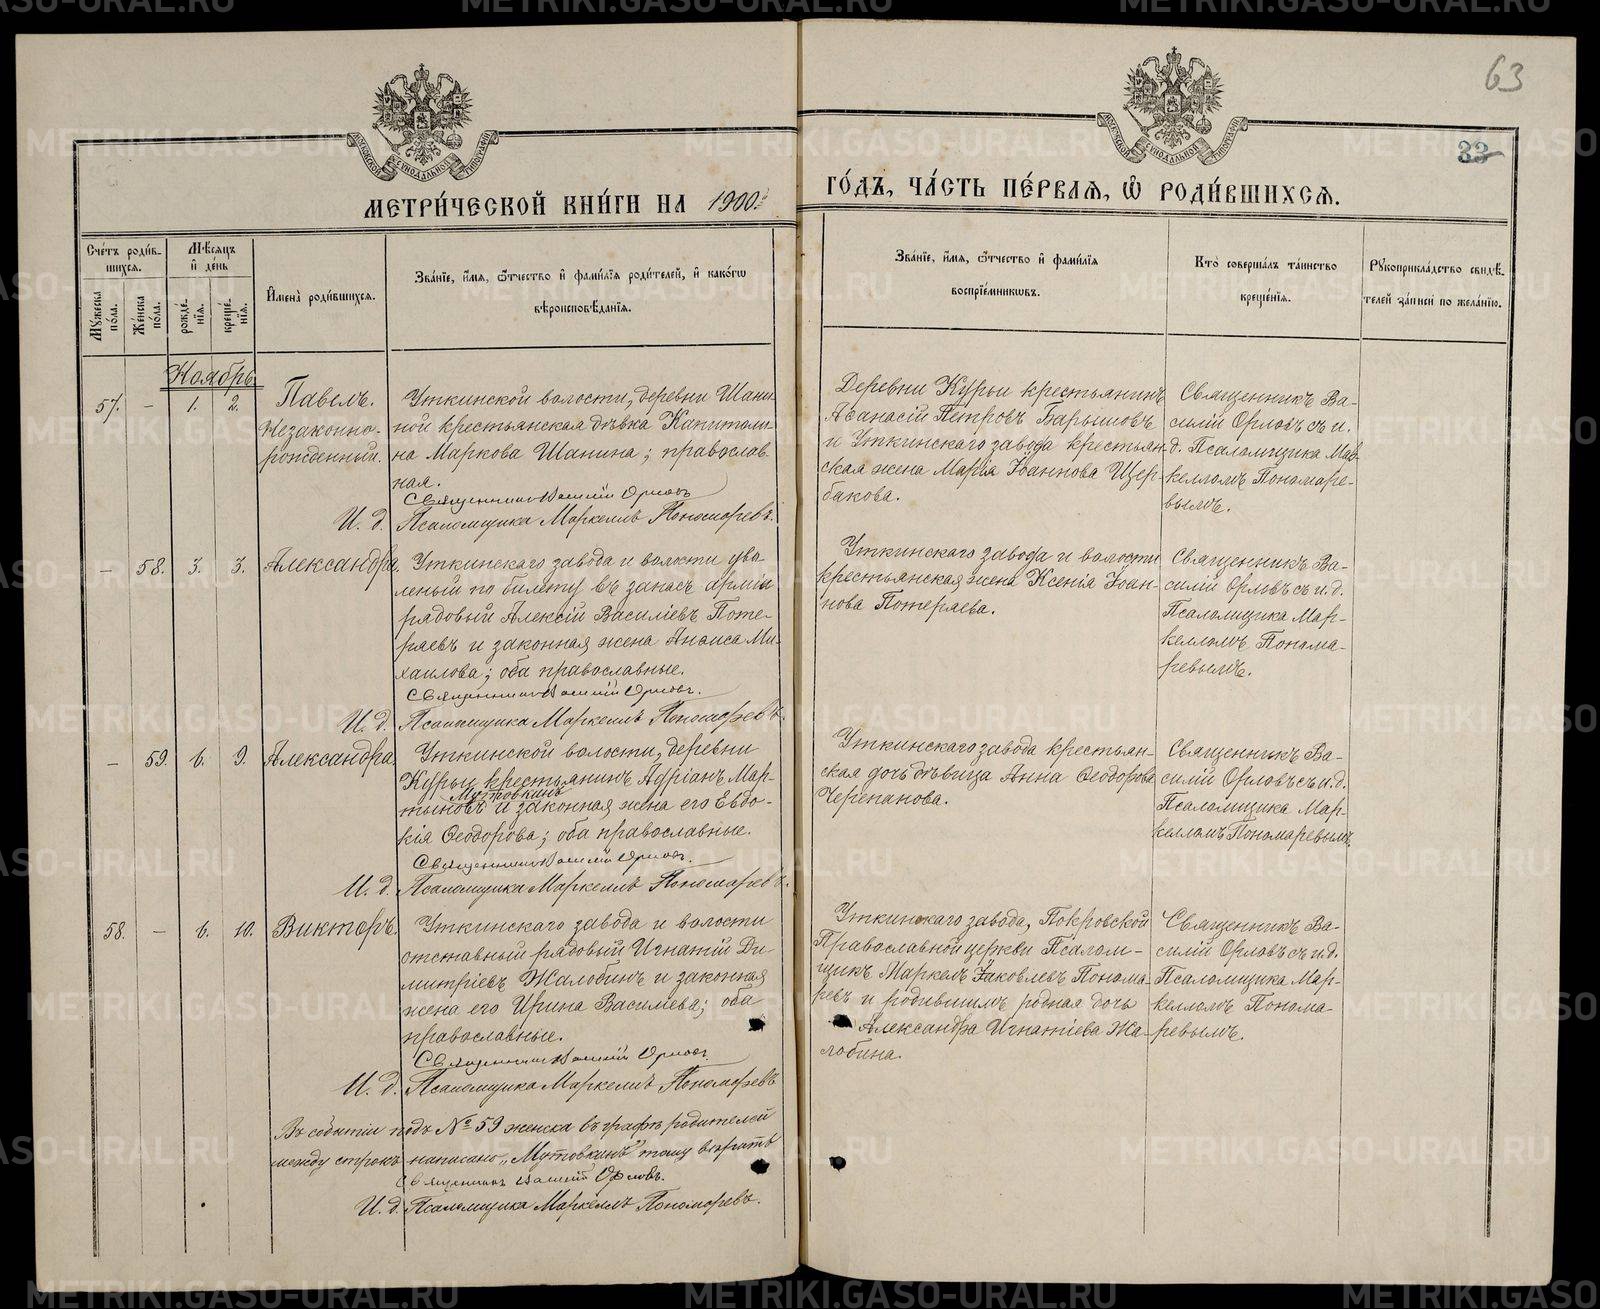 63
33
МЕТРИ́ЧЕСКОЙ КНИ́ГИ НА 1900й ГО́ДЪ, ЧА́СТЬ ПЕ́РВАЯ, Ѡ РОДИ́ВШИХСЯ.
Сче́тъ роди́в-
шихся.
Мѣ́сяцъ
и де́нь
Му́жеска по́ла.
Же́нска по́ла.
рожде́-
нїя.
креще́-
нїя.
Имена̀ роди́вшихся.
Зва́нїе, и́мя, ѻ́тчество и фами́лїя роди́телей, и како́гѡ
вѣроисповѣ́данїя.
Зва́нїе, и́мя, ѻ́тчество и фами́лїя
воспрїе́мникѡвъ.
Кто̀ соверша́лъ та́инство
креще́нїя.
Рукоприкла́дство свидѣ́-
телей за́писи по жела́нїю.
Ноябрь.
57. — 1. 2.
Павелъ.
Незаконно-
рожденный.
Уткинской волости, деревни Шани-
ной крестьянская дѣвка Капитоли-
на Маркова Шанина; православ-
ная.
Священникъ Василій Орловъ
И. д. Псаломщика Маркеллъ Пономаревъ.
Деревни Курьи крестьянинъ
Аѳанасій Петровъ Барышовъ
и Уткинскаго завода крестьян-
ская жена Марія Іоаннова Щер-
бакова.
Священникъ Ва-
силій Орловъ съ и.
д. Псаломщика Мар-
келломъ Пономаре-
вымъ.
— 58. 3. 3.
Александра.
Уткинскаго завода и волости уво-
леный по билету въ запасъ арміи
рядовый Алексій Василіевъ Поте-
ряевъ и законная жена Анѳиса Ми-
хаилова; оба православные.
Священникъ Василій Орловъ.
И. д. Псаломщика Маркеллъ Пономаревъ.
Уткинскаго завода и волости
крестьянская жена Ксенія Іоан-
нова Потеряева.
Священникъ Ва-
силій Орловъ съ и. д.
Псаломщика Мар-
келломъ Понома-
ревымъ.
— 59. 6. 9.
Александра.
Уткинской волости, деревни
Курьи крестьянинъ Адріанъ Мар-
Мутовкинъ
тыновъ и законная жена его Евдо-
кія Ѳеодорова; оба православные.
Священникъ Василій Орловъ.
И. д. Псаломщика Маркеллъ Пономаревъ.
Уткинскаго завода крестьян-
ская дочь дѣвица Анна Ѳеодорова
Черепанова.
Священникъ Ва-
силій Орловъ съ и. д.
Псаломщика Мар-
келломъ Пономаревымъ.
58. — 6. 10.
Викторъ.
Уткинскаго завода и волости
отставный рядовый Игнатій Ди-
митріевъ Жалобинъ и законная
жена его Ирина Василіева; оба
православные.
Священникъ Василій Орловъ.
И. д. Псаломщика Маркеллъ Пономаревъ
Уткинскаго завода, Покровской
Православной церкви Псалом-
щикъ Маркелъ Іаковлевъ Понома-
ревъ и родившимъ родная дочь
Александра Игнатіева Жа-
лобина.
Священникъ Ва-
силій Орловъ съ и. д.
Псаломщика Мар-
келломъ Понома-
ревымъ.
Въ событіи подъ № 59 женска въ графѣ родителей
между строкъ написано „Мутовкинъ" тому вѣрить
Священникъ Василій Орловъ.
И. д. Псаломщика Маркеллъ Пономаревъ.
METRIKI.GASO-URAL.RU